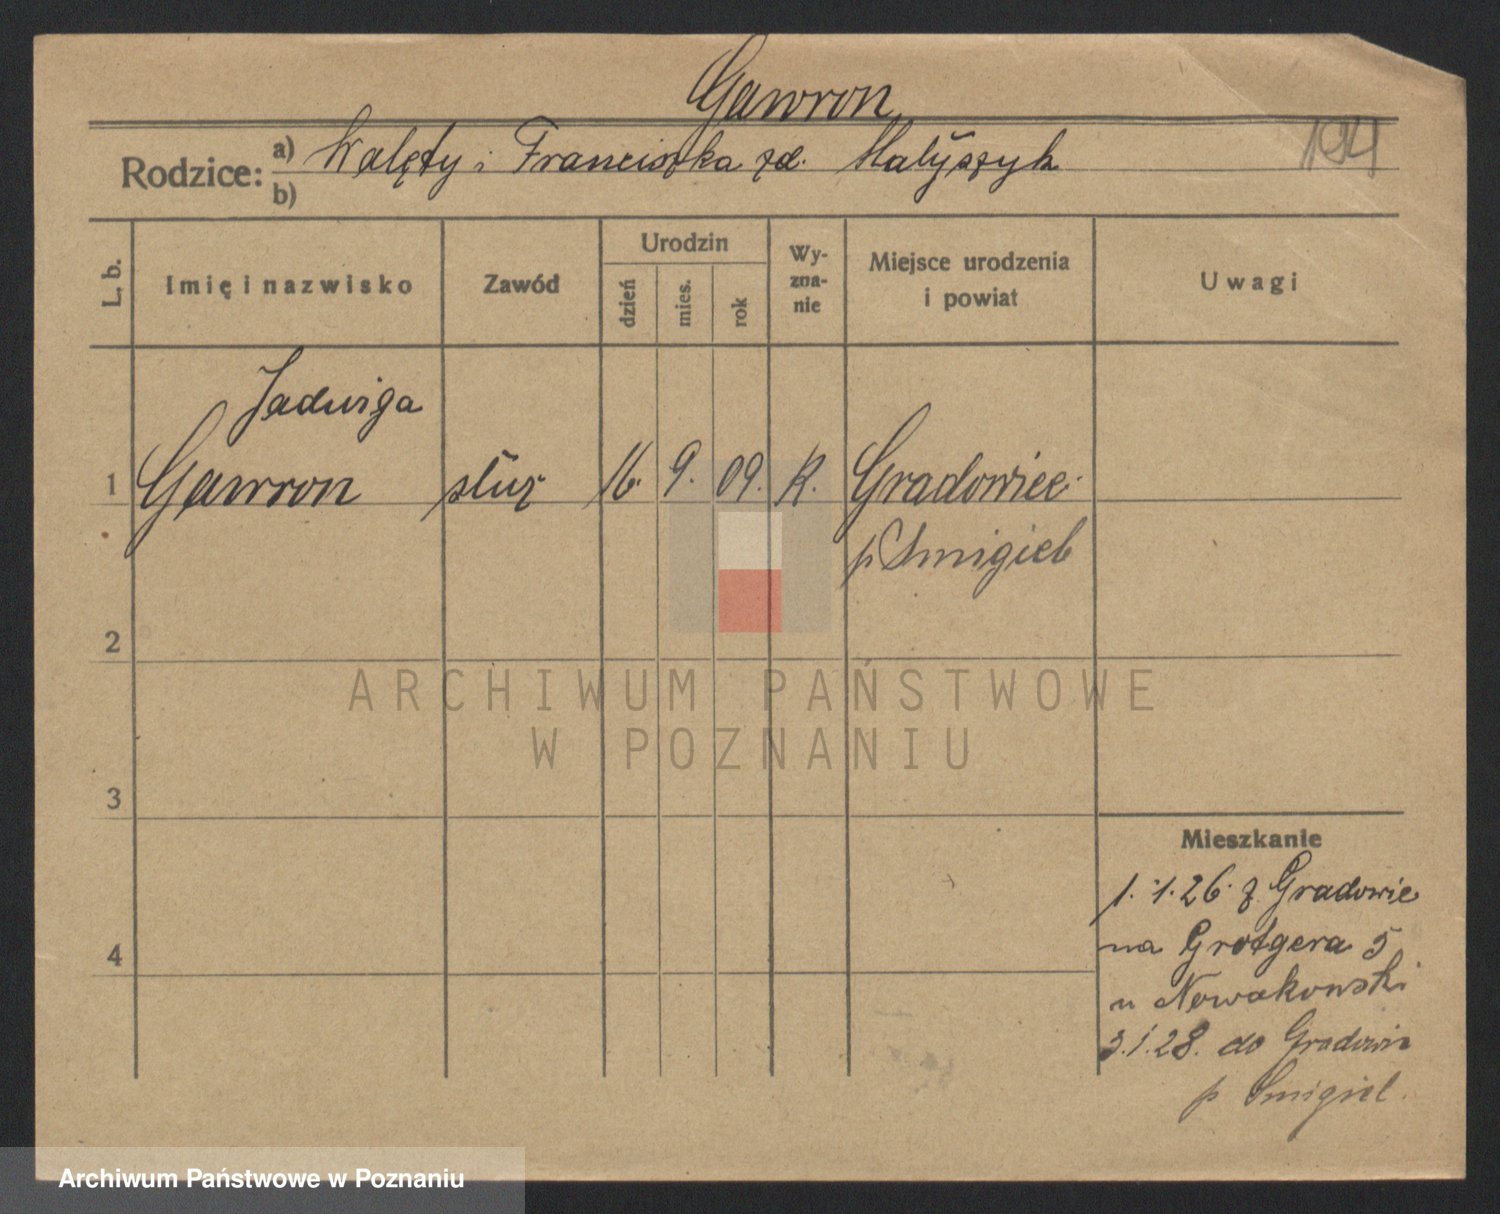 Gawron
194
Rodzice: a) Walęty i Franciszka zd. Małyszyk
b)
L. b.
Imię i nazwisko
Zawód
Urodzin
dzień
mies.
rok
Wy-
zna-
nie
Miejsce urodzenia
i powiat
Uwagi
Jadwiga
1 Gawron służ 16. 9. 09. R. Gradowiec
p Smigiel
2
3
4
Mieszkanie
1.1.26. z Gradowic
na Grotgera 5
u Nowakowski
3.1.28. do Gradowic
p Smigiel.
ARCHIWUM PAŃSTWOWE
W POZNANIU
Archiwum Państwowe w Poznaniu